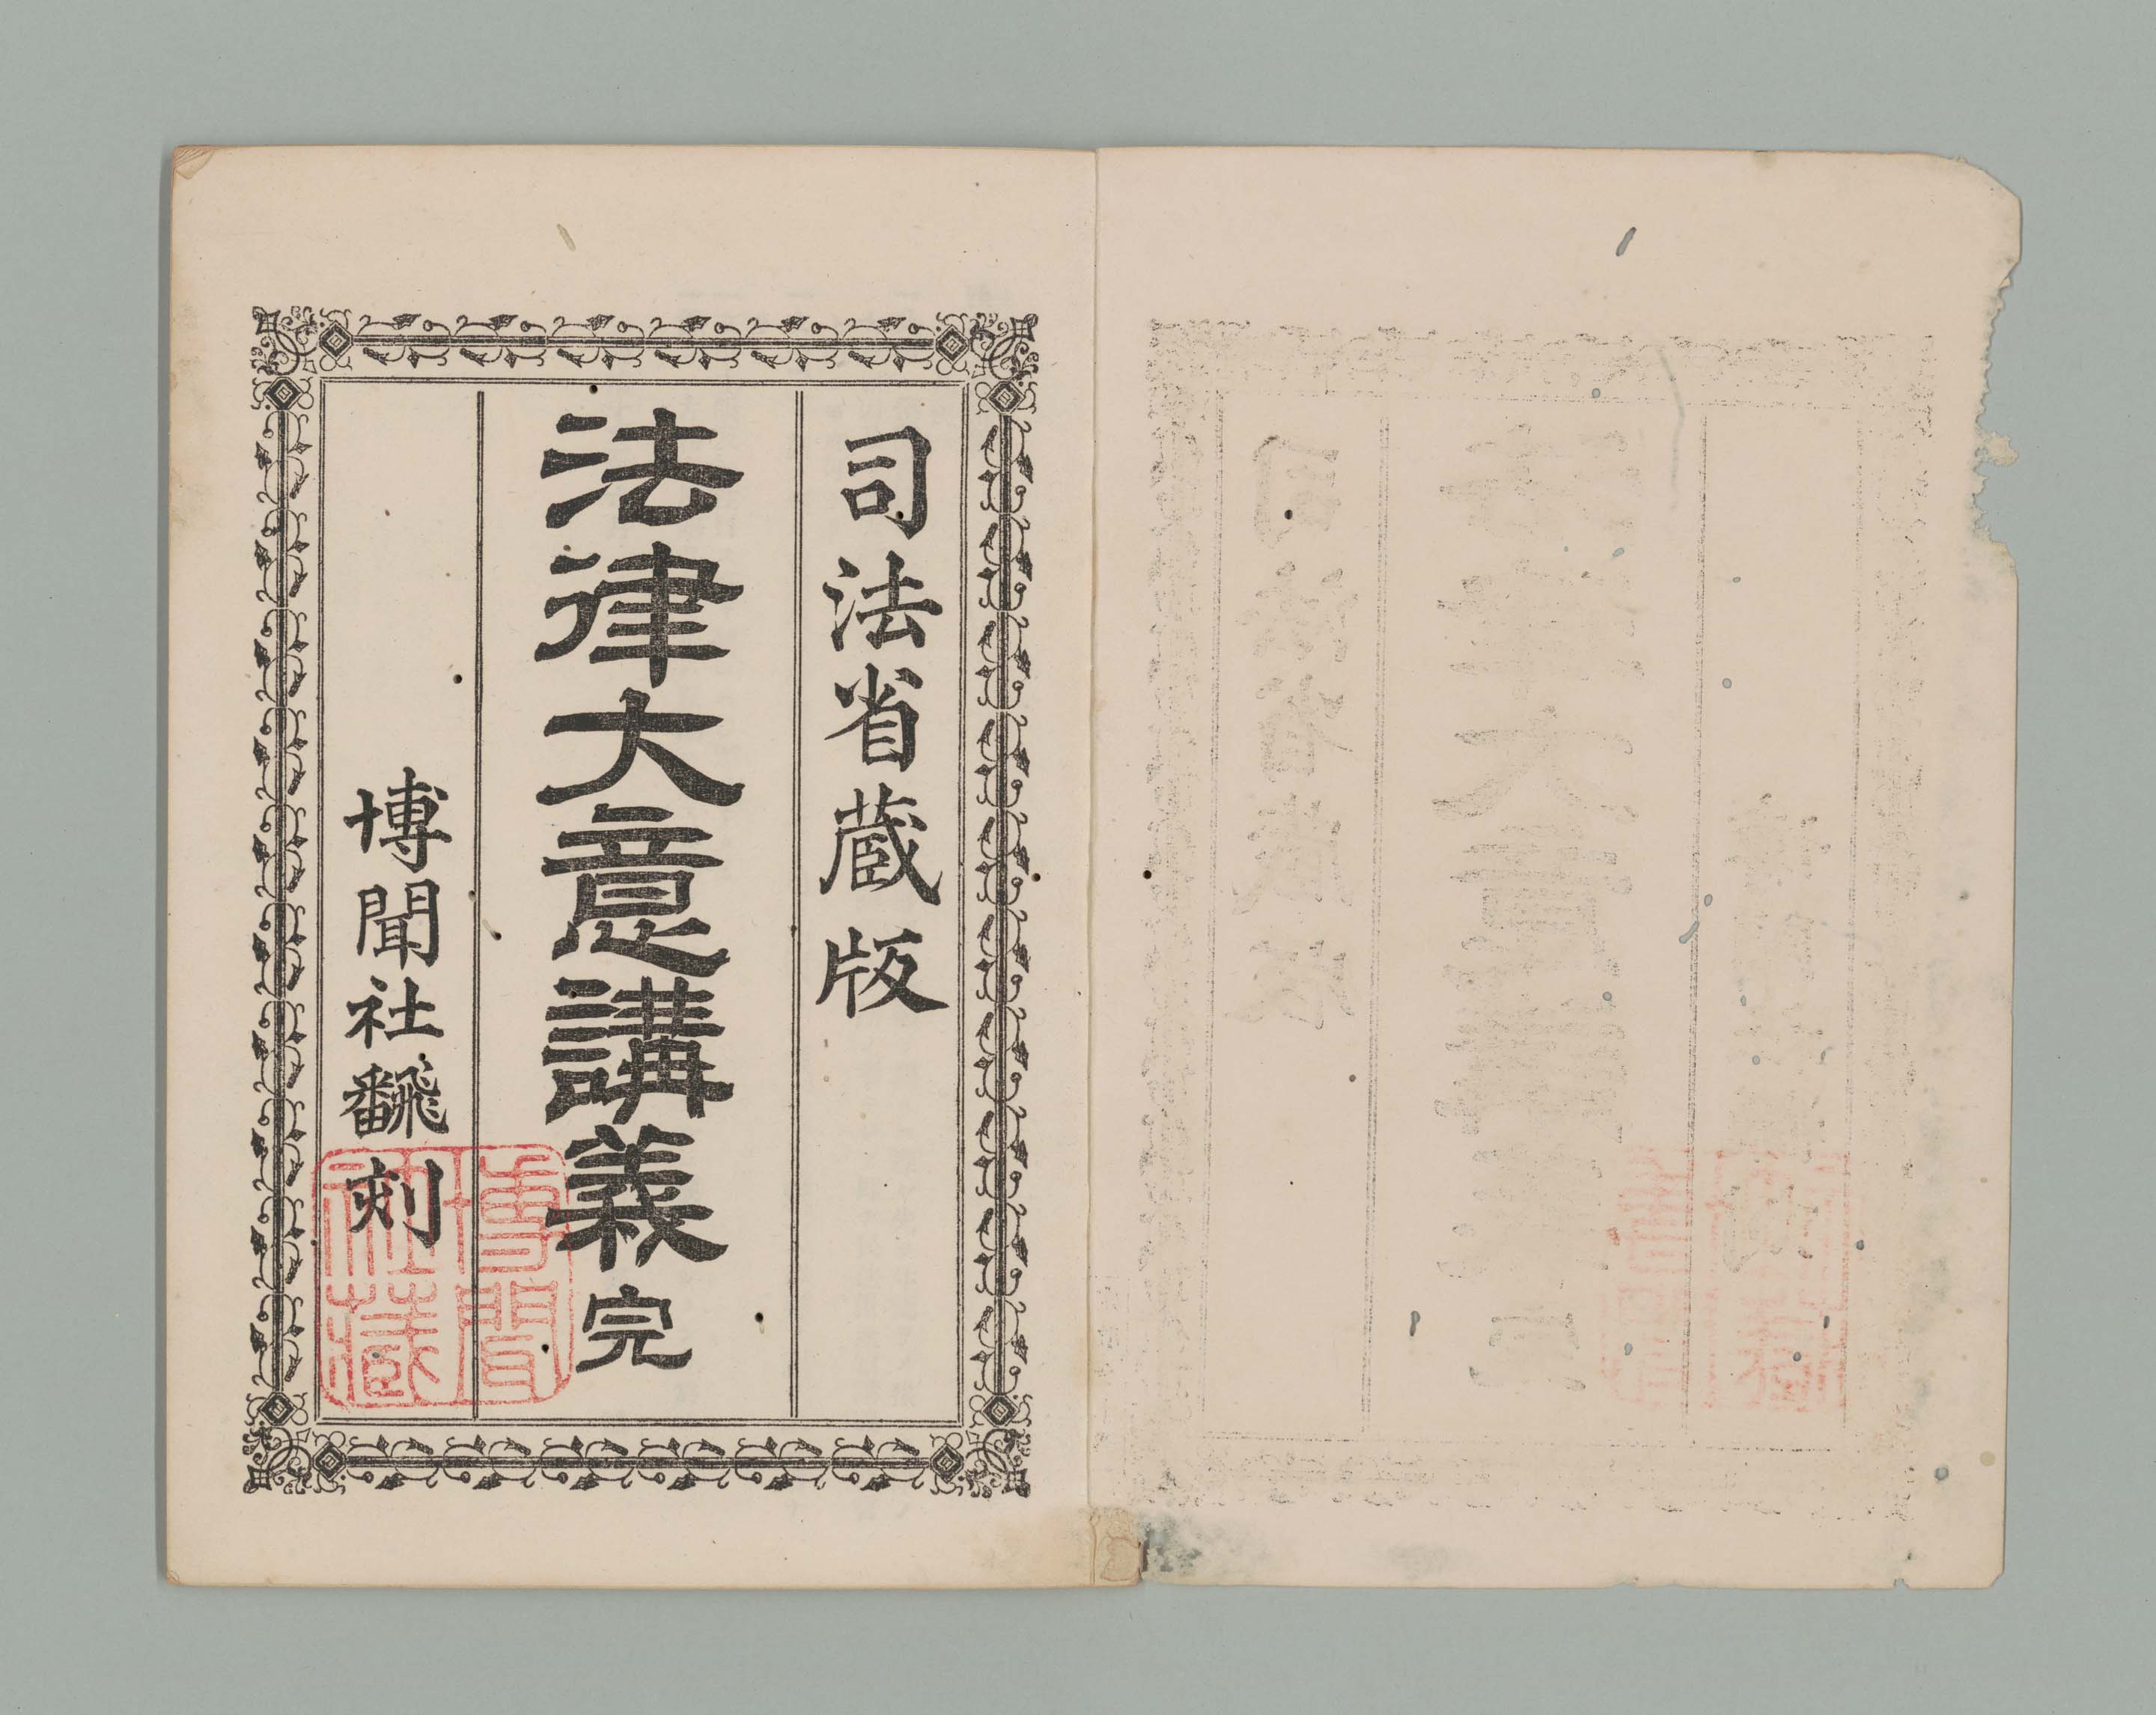 司法省蔵版
法律大意講義 完
博聞社飜刻
博聞
社蔵